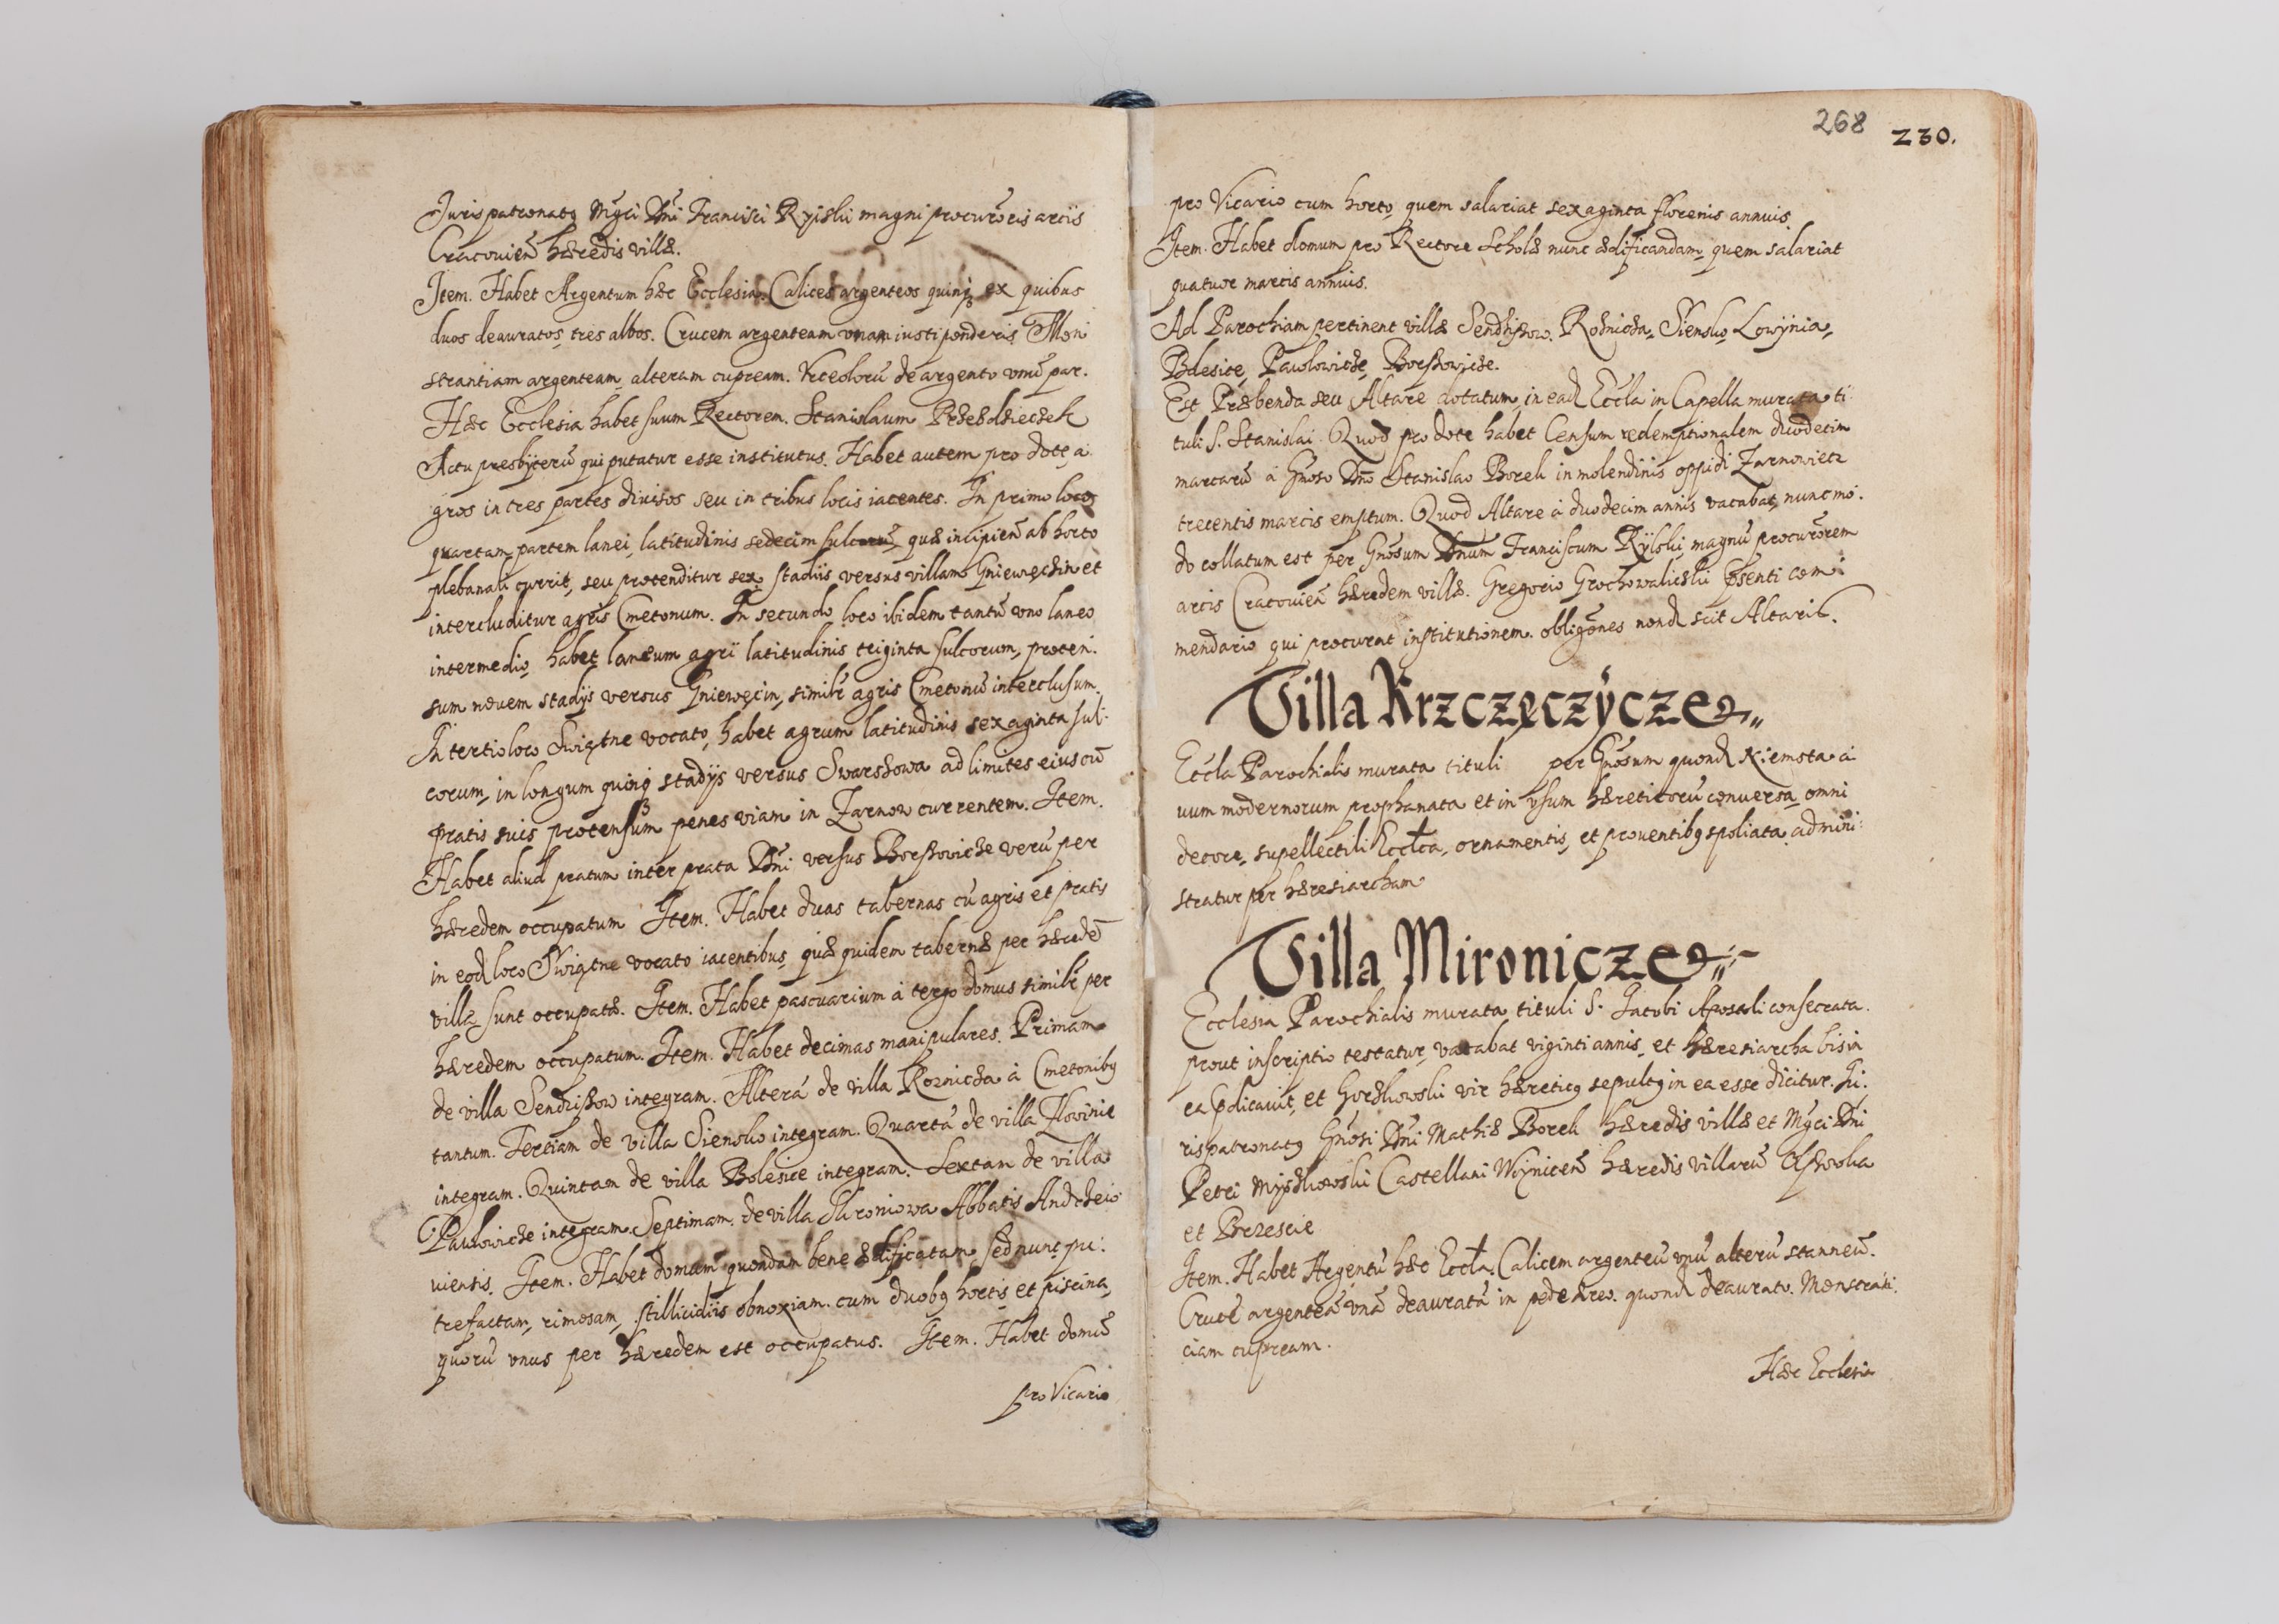 Jurispatronatꝰ Mgci Dni Francisci Ryilskii magni procuroris arcis
Cracovien̄ hæredis villæ.
Item. Habet Argentum hæc Ecclesia. Calices argenteos quinqꝫ ex quibus
duos deauratos, tres albos. Crucem argenteam unam iusti ponderis Mon
strantiam argenteam, alteram cupream. Urceolorū de argento unū par.
Hæc Ecclesia habet suum Rectorem. Stanislaum Przebdzieczek
Actu presbÿterū qui putatur esse institutus. Habet autem pro dote a
gros in tres partes divisos seu in tribus locis iacentes. In primo locos
quartam partem lanei, latitudinis sedecim sulcorū, quæ incipien̄ ab horto
plebanali currit, seu protenditur sex stadiis versus villam Gniewęchin et
intercluditur agris Cmetonum. In secundo loco ibidem tantū uno laneo
intermedio, habet laneum agri latitudinis triginta sulcorum, proten:
sum novem stadijs versus Gniewęcin, similr̄ agris Cmetonū interclusum.
In tertio loco Swiątne vocato, habet agrum latitudinis sexaginta sul:
corum, in longum quinqꝫ stadijs versus Swarszowa ad limites eius cū
pratis suis protensum penes viam in Zarnow currentem. Item.
Habet aliud pratum inter prata Dni versus Borszovicze verū per
hæredem occupatum Item. Habet duas tabernas cū agris et pratis
in eod loco Swiątne vocato iacentibus, quæ quidem tabernæ per hæredē
villæ sunt occupatæ. Item. Habet pascuarium à tergo domus similr̄ per
hæredem occupatum. Item. Habet decimas manipulares. Primam
de villa Sendzissow integram. Alterā de villa Roznicza à Cmetonibꝰ
tantum. Tertiam de villa Siensko integram. Quartā de villa Łowinie
integram. Quintam de villa Bolesice integram. Sextam de villa
Pawlowicze integram. Septimam. de villa Skroniowa Abbatis Andrzeio
viensis. Item. Habet domum quondam bene ædificatam, sed nunc pu:
trefactam, rimosam, stillicidiis obnoxiam. cum duobꝰ hortis et piscina,
quorū unus per hæredem est occupatus. Item. Habet domū
pro Vicario
268
230.
pro Vicario cum horto, quem salariat sexaginta florenis annuis.
Item. Habet domum pro Rectore Scholæ nunc ædificandam, quem salariat
quatuor marcis annuis.
Ad Parochiam pertinent villæ Sendziszow. Roznicza, Siensko, Lowÿnia,
Bolesice, Pavlowicze, Borszowicze.
Est Præbenda seu Altare dotatum, in ead Eccla in Capella murata ti:
tuli S. Stanislai. Quod pro dote habet Censum redemptionalem duodecim
marcarū à Gnoso Dno Stanislao Borek in molendinis oppidi Zarnowietz
trecentis marcis emptum. Quod Altare à duodecim annis vacabat, nunc mo:
do collatum est per Gnosum Dnum Franciscum Rÿlski magnū procurorem
arcis Cracovien̄ hæredem villæ. Gregorio Grochowaliczki p̄senti com:
mendario qui procurat institutionem. obligones nond scit Altaris.
Villa Krzczęczÿcze
Eccla Parochialis murata tituli per Gnosum quond Kiemsta a:
vum modernorum prophanata et in usum hæreticorū conversa, omni
decore, supellectili Ecclca, ornamentis, et proventibꝰ spoliata. admini:
stratur per hæresiarcham
Villa Mironicze
Ecclesia Parochialis murata tituli S. Jacobi Apostoli consecrata.
prout inscriptio testatur, vacabat viginti annis, et hæresiarcha bis in
ea p̄dicavit, et Gorzkowski vir hæreticꝰ sepultꝰ in ea esse dicitur. Ju:
rispatronatꝰ Gnosi Dni Mathiæ Borek hæredis villæ et Mgci Dni
Petri Myszkowski Castellani Woÿnicen̄ hæredis villarū
et Brzescie
Item. Habet Argentū hæc Eccla. Calicem argenteū unū alterū stanneū.
Crucē argenteā unā deauratā in pede æreo. quond deaurato. Monstran:
ciam cupream.
Hæc Ecclesia